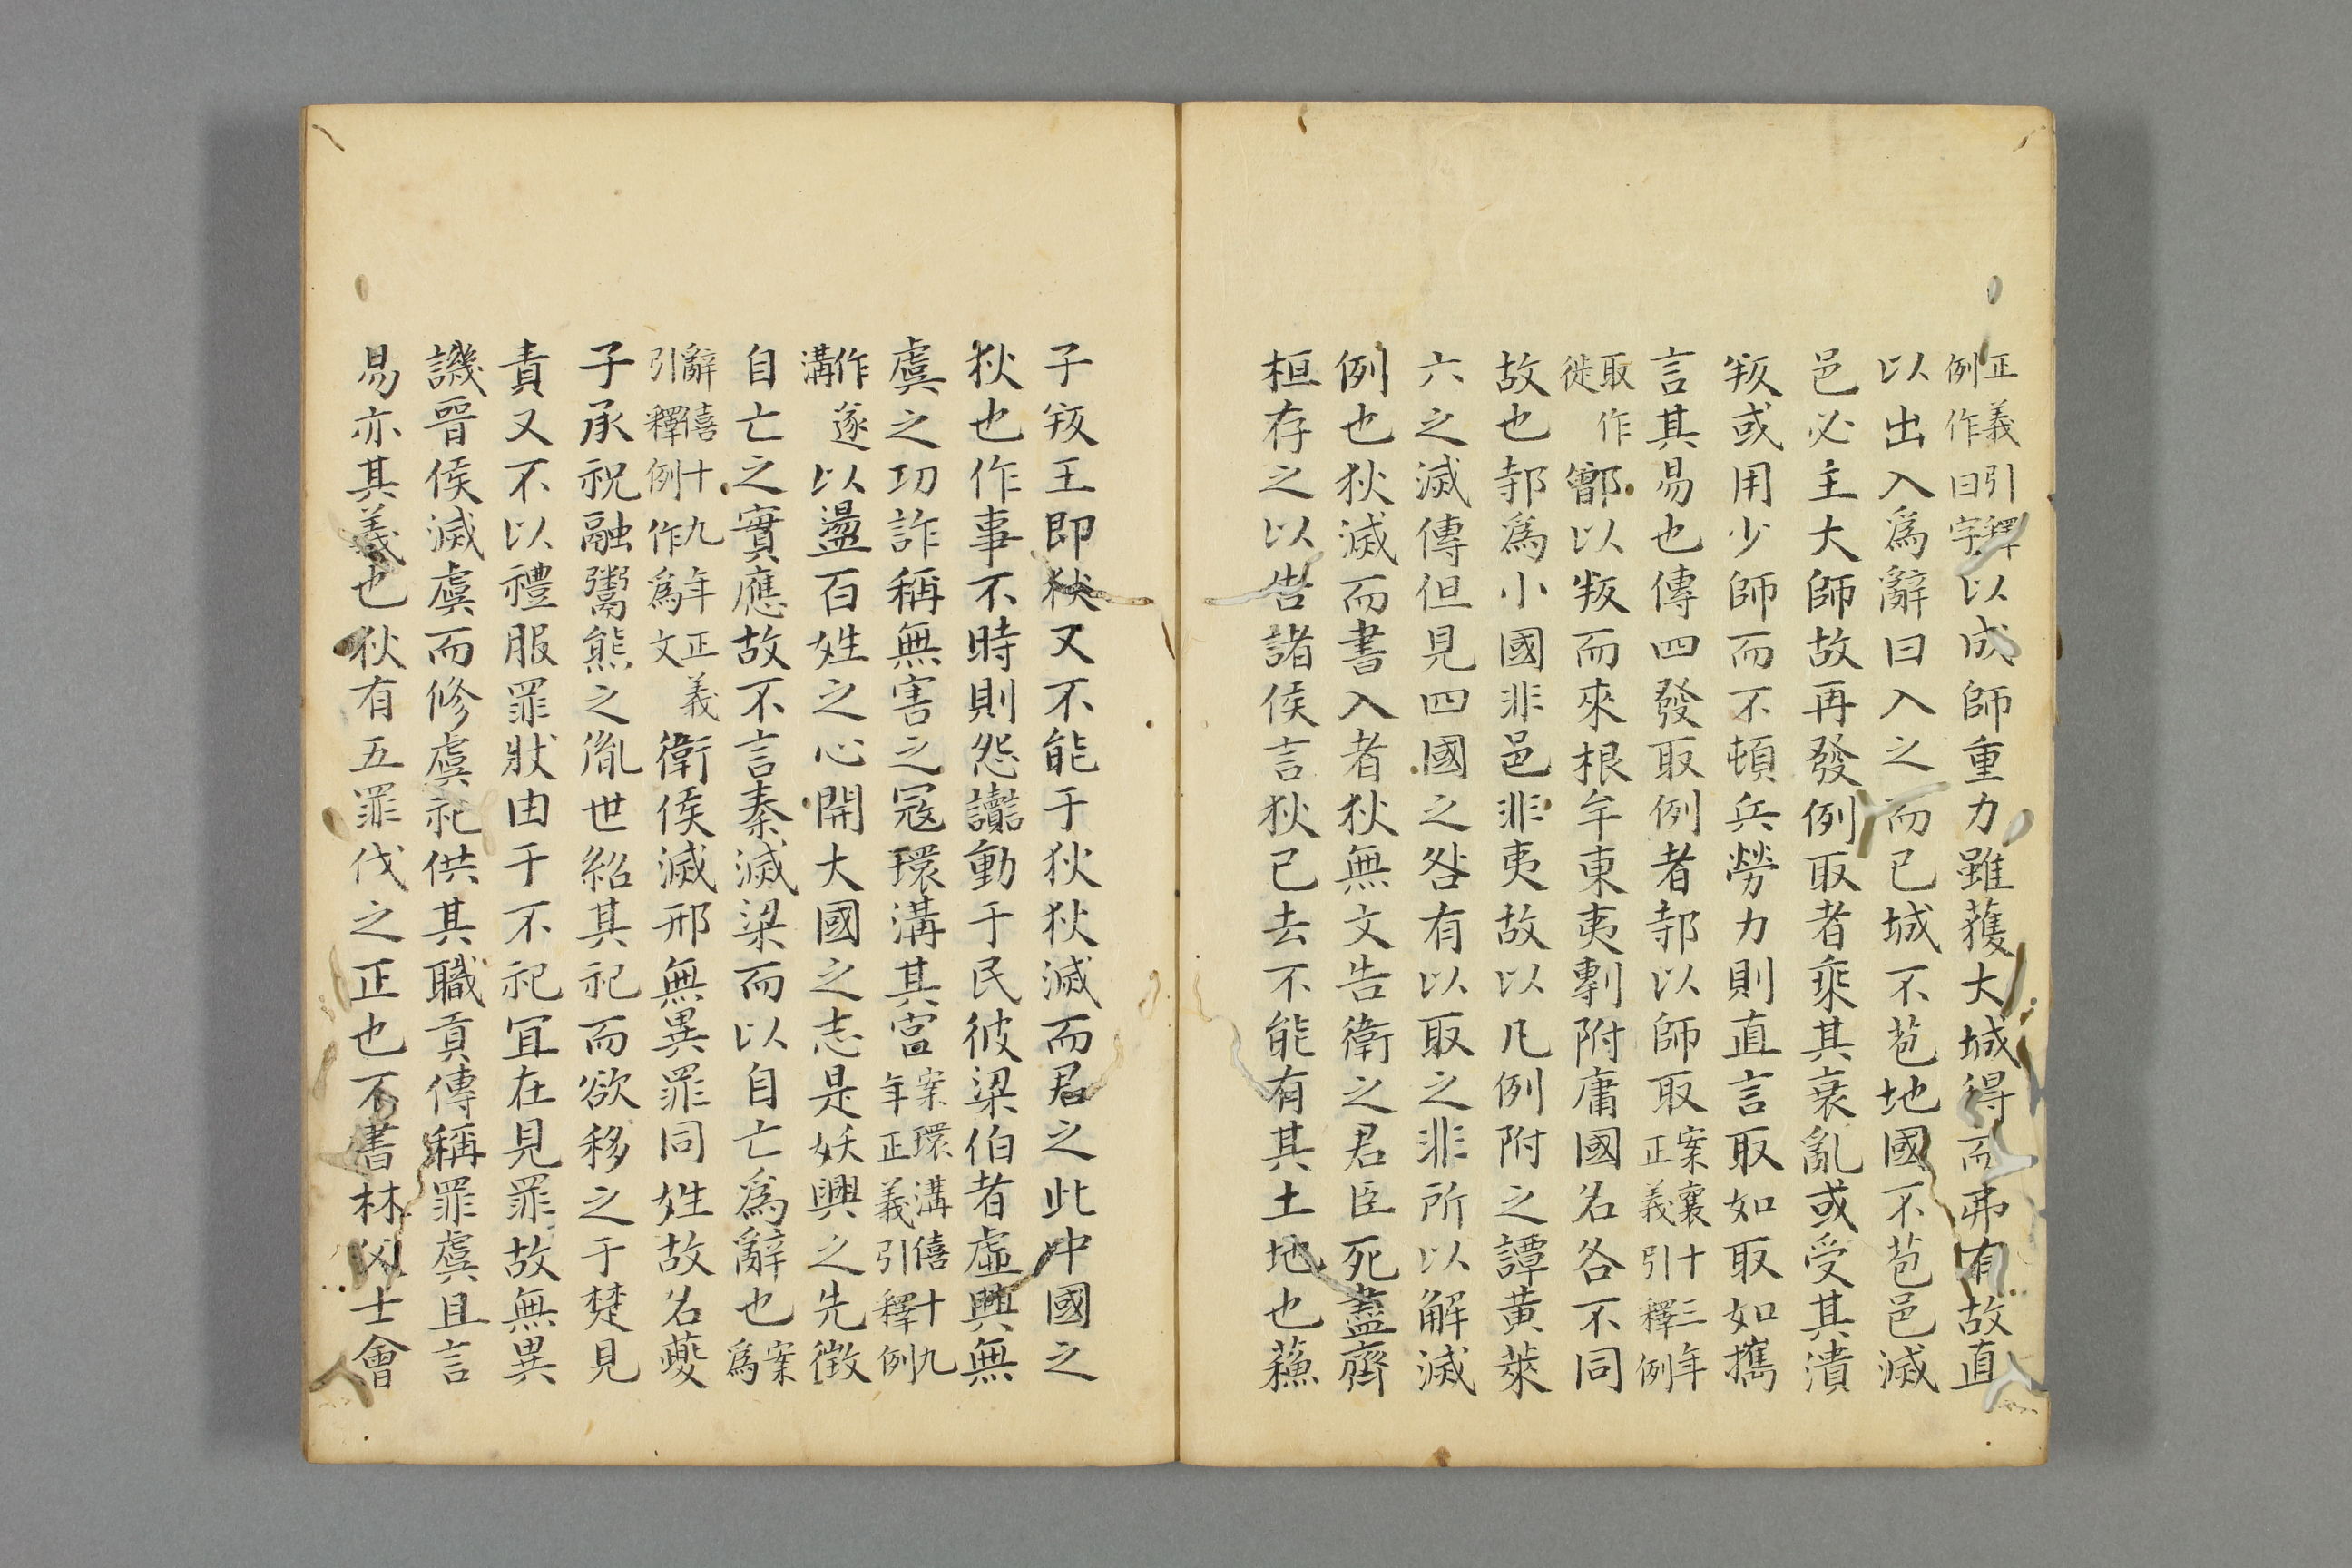 正義引釋例作曰字以成師重力雖獲大城得而弗有故直
以出入爲辭曰入之而已城不苞地國不苞邑滅
邑必主大師故再發例取者乘其衰亂或受其潰
叛或用少師而不頓兵勞力則直言取如取如攜
言其易也傳四發取例者邿以師取案襄十三年正義引釋例
取作徙鄫以叛而來根牟東夷剸附庸國名各不同
故也邿爲小國非邑非夷故以凡例附之譚黃萊
六之滅傳但見四國之咎有以取之非所以解滅
例也狄滅而書入者狄無文告衛之君臣死盡齊
桓存之以告諸侯言狄已去不能有其土地也蘓
子叛王即狄又不能于狄狄滅而君之此中國之
狄也作事不時則怨讟動于民彼梁伯者虛興無
虞之功詐稱無害之寇環溝其宫案環溝僖十九年正義引釋例
作溝遂以盪百姓之心開大國之志是妖興之先徵
自亡之實應故不言秦滅梁而以自亡爲辭也案爲
辭僖十九年正義引釋例作爲文衛侯滅邢無異罪同姓故名夔
子承祝融鬻熊之胤世紹其祀而欲移之于楚見
責又不以禮服罪狀由于不祀冝在見罪故無異
譏晉侯滅虞而修虞祀供其職貢傳稱罪虞且言
易亦其義也狄有五罪伐之正也不書林父士會